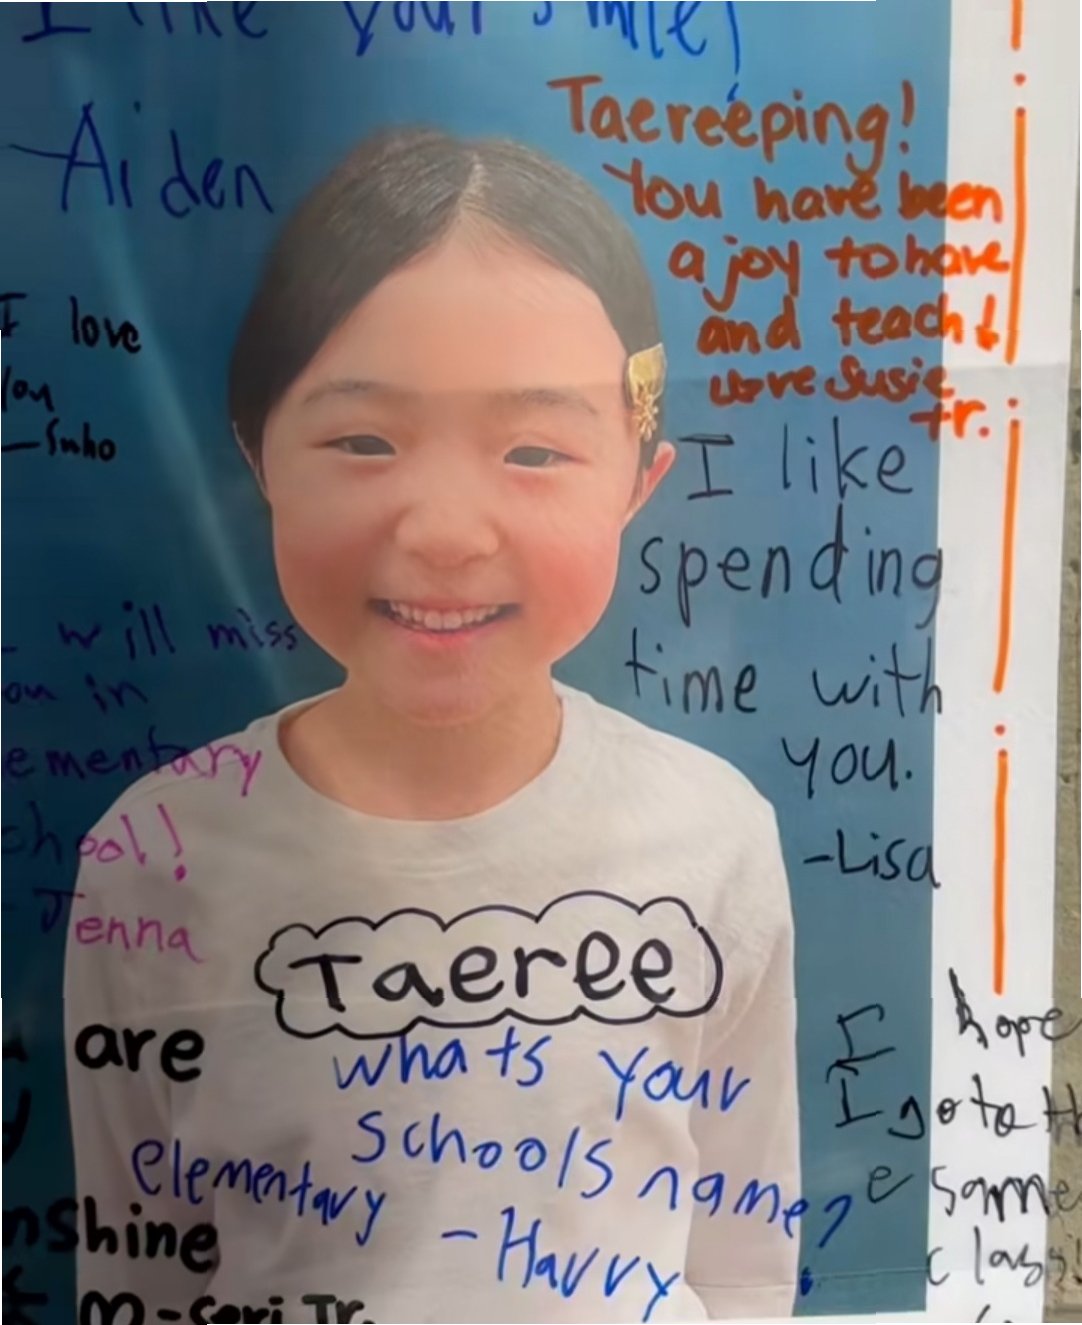 I like your smile!
Aiden
Taereeping!
You have been
a joy to have
and teach!
Love Susie
tr.
I love
you
-Suho
I like
spending
time with
you.
-Lisa
will miss
in
ementary
chool!
Jenna
Taeree
are
nshine
m-Seri Tr.
whats your
schools name?
elementary
-Harry
I hope
I go to
same
class!